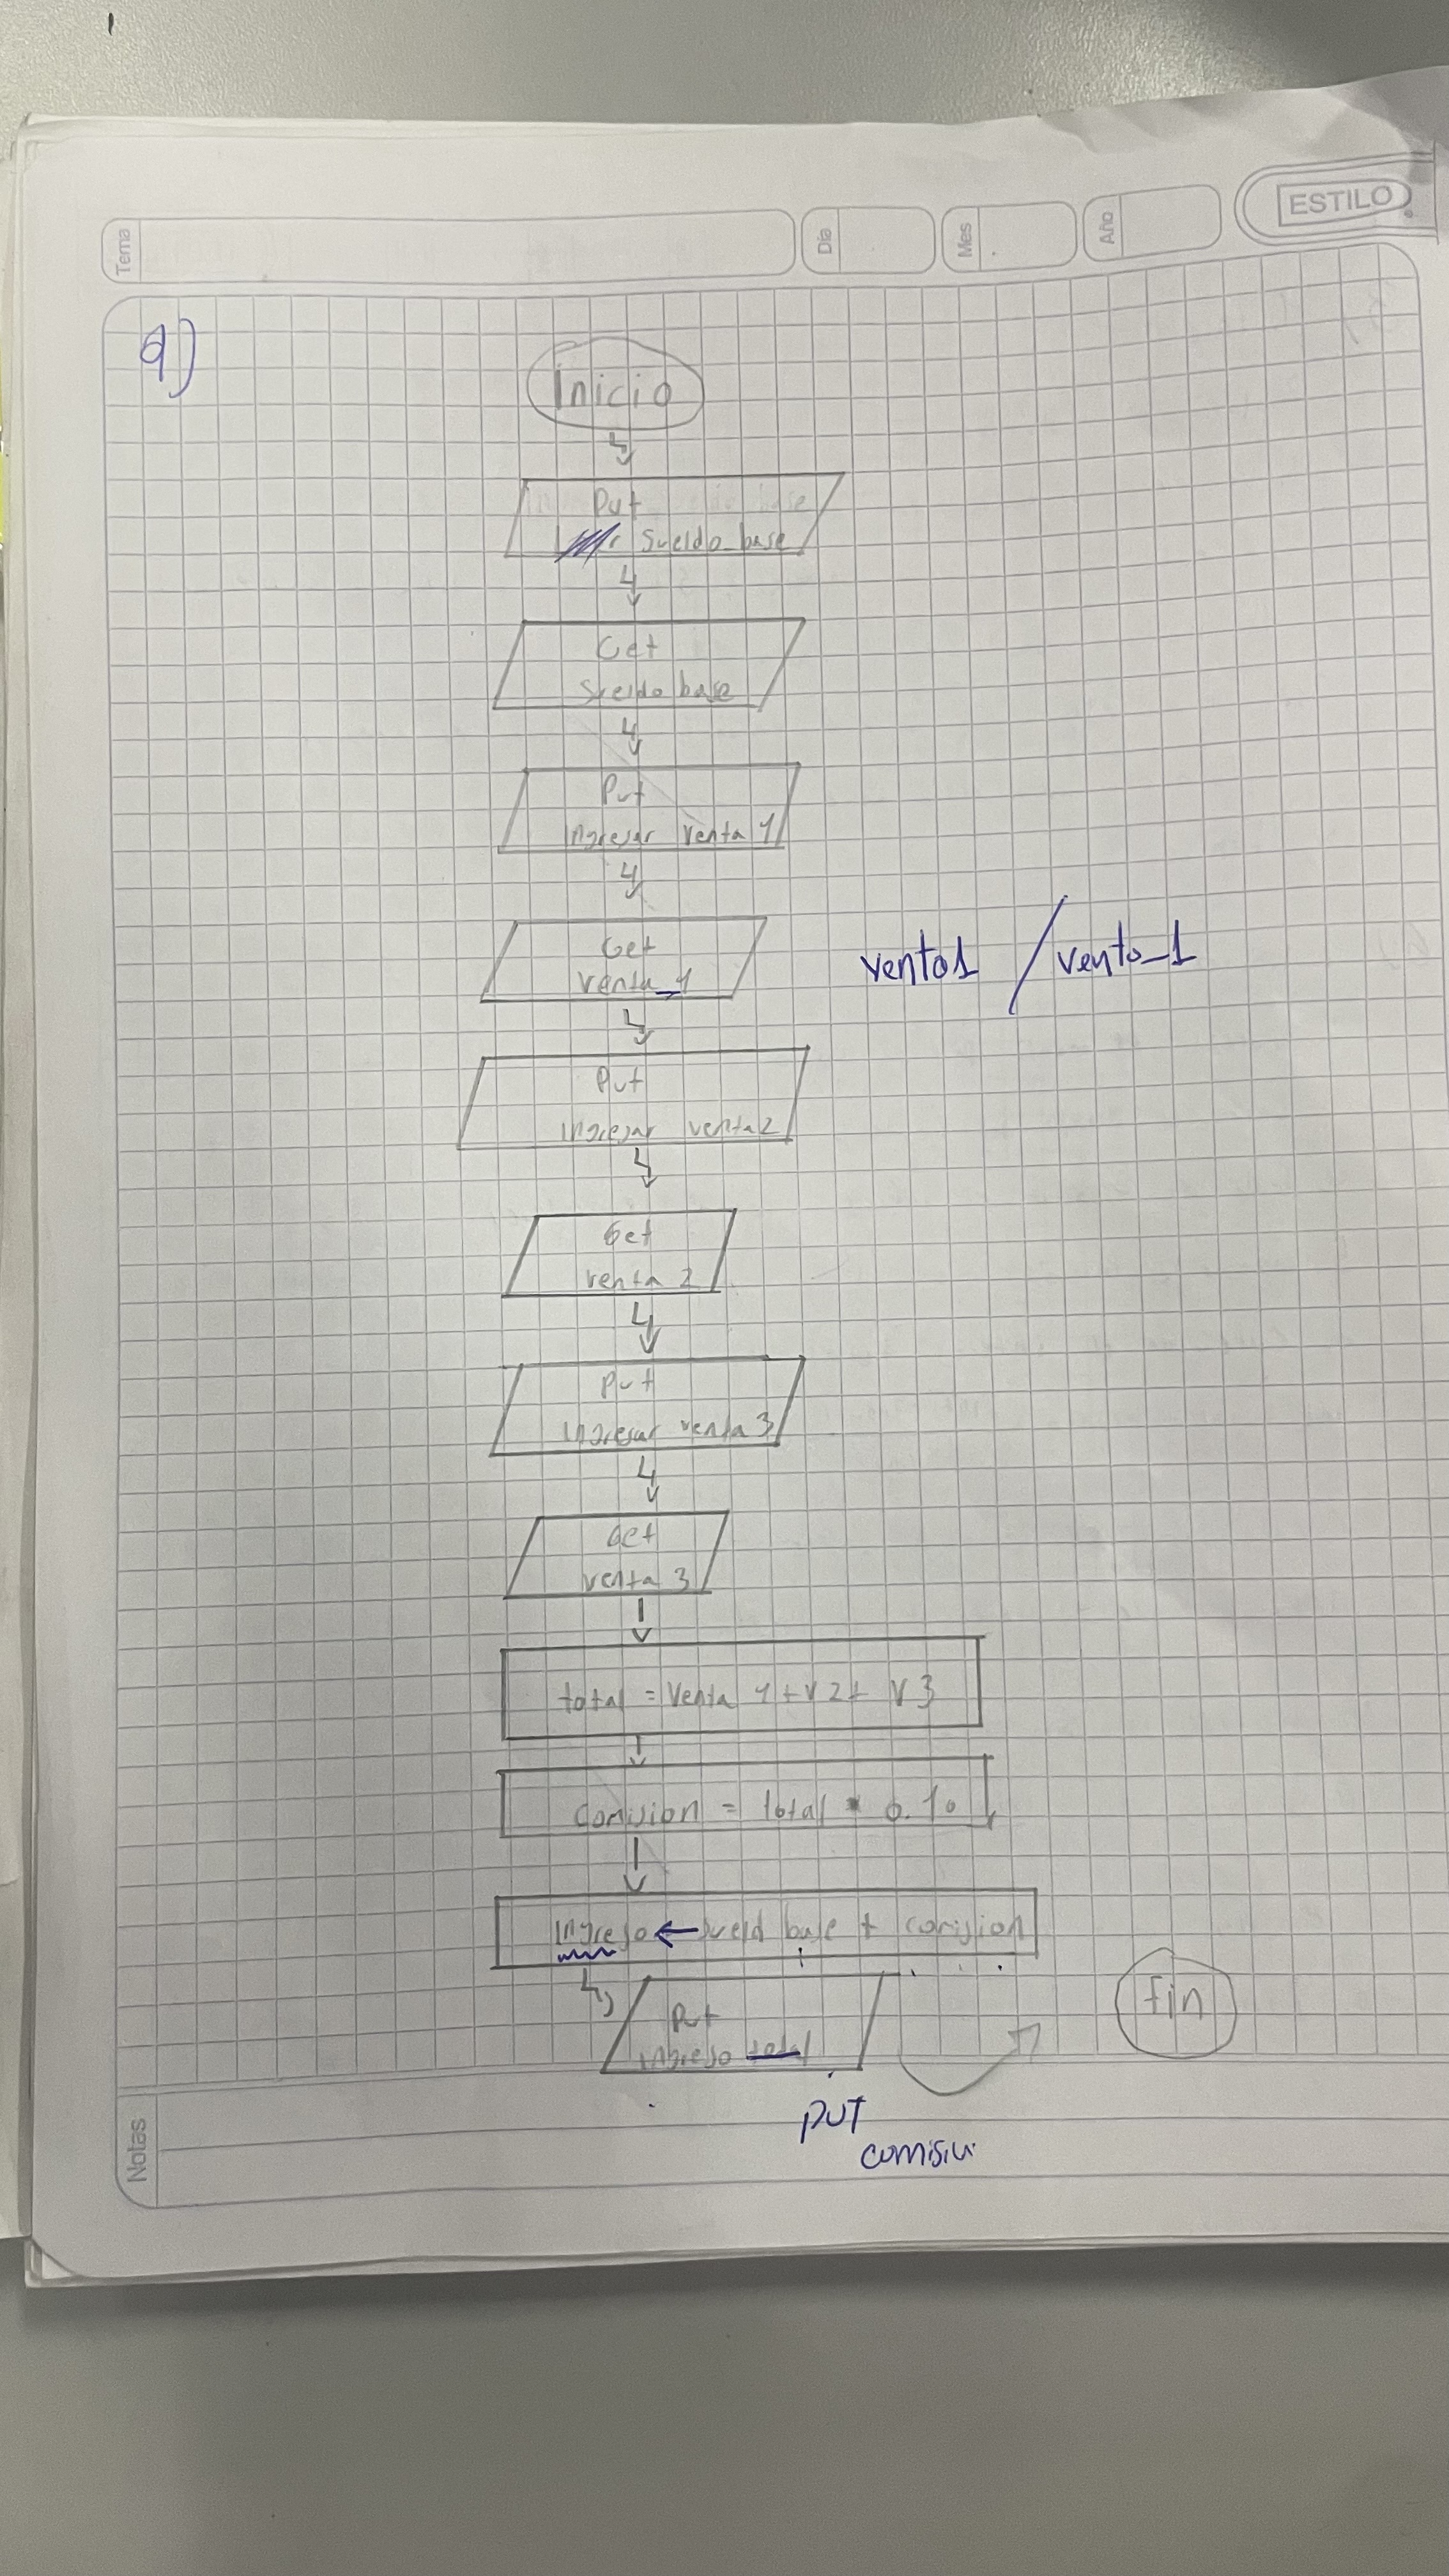 Tema
Día
Mes
Año
ESTILO
9)
Inicio
Put
Sueldo_base
Get
Sueldo base
Put
Ingresar venta 1
Get
venta_1
venta1 / venta_1
Put
Ingresar venta2
Get
venta 2
Put
Ingresar venta 3
Get
venta 3
total = Venta 1 + V2 + V3
Comision = total * 0.10
Ingreso ← Sueld base + comision
Put
Ingreso total
fin
PUT
Notas